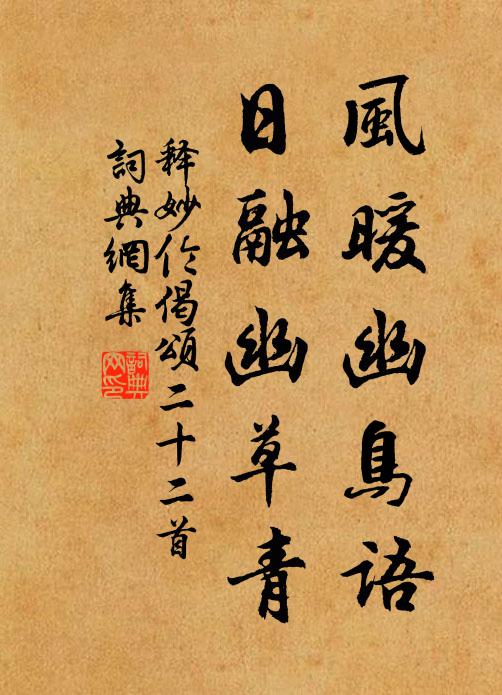 風暖幽鳥語
日融幽草青
释妙伦偈頌二十二首
詞典網集
詞典网印